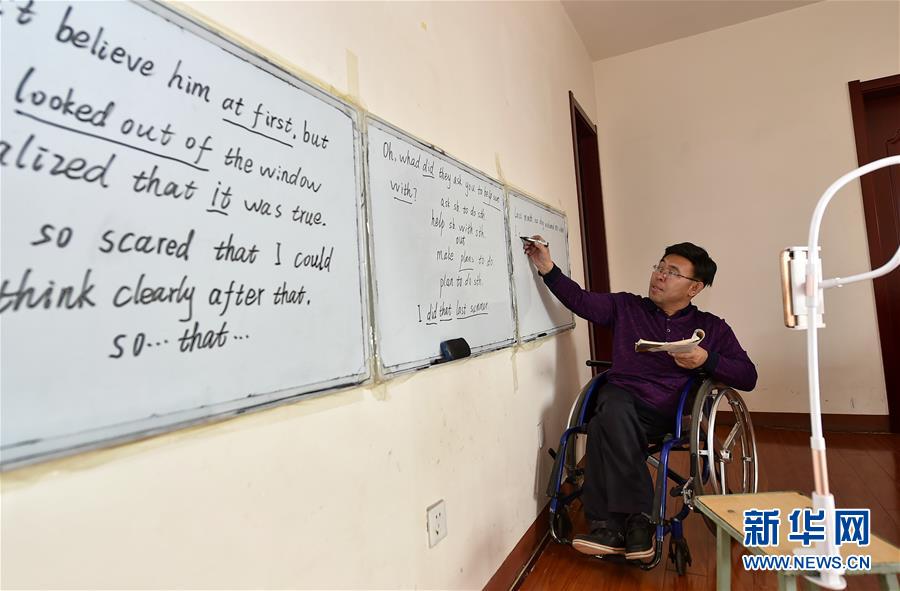 't believe him at first, but
looked out of the window
alized that it was true.
so scared that I could
think clearly after that.
so... that...
Oh, whad did they ask you to help out
with?
ask sb to do sth.
help sb with sth.
out
make plans to do
plan to do sth.
I did that last summer
新华网
WWW.NEWS.CN